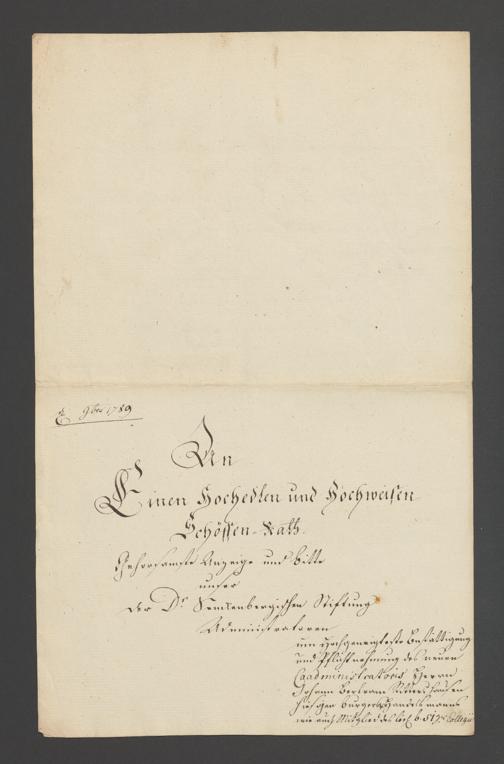 9br 1789
An
Einen Hochedlen und Hochweisen
Schöffen-Rath
Gehorsamste Anzeige und Bitte
unser
der Dr Senckenbergischen Stiftung
Administratoren
um Hochgeneigteste Bestättigung
und Pflichtnehmung des neuen
Coadministratoris Herrn
Johann Bertram
hiesigen Burgers Handelsmanns
wie auch Mitglied des löbl 51gr Collegii